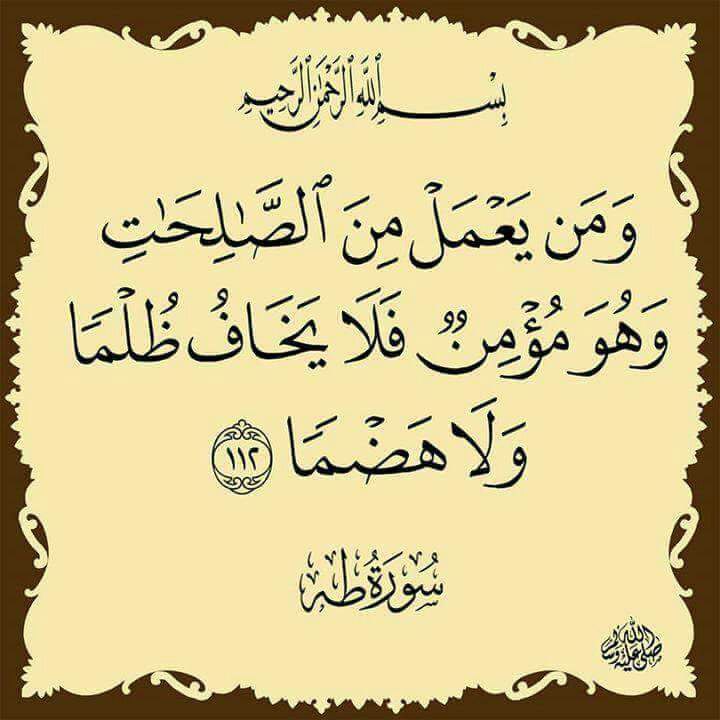 بِسْمِ ٱللَّهِ ٱلرَّحْمَٰنِ ٱلرَّحِيمِ
وَمَن يَعْمَلْ مِنَ ٱلصَّٰلِحَٰتِ
وَهُوَ مُؤْمِنٌ فَلَا يَخَافُ ظُلْمًا
وَلَا هَضْمًا ١١٢
سُورَةُ طه
صلى الله عليه وسلم